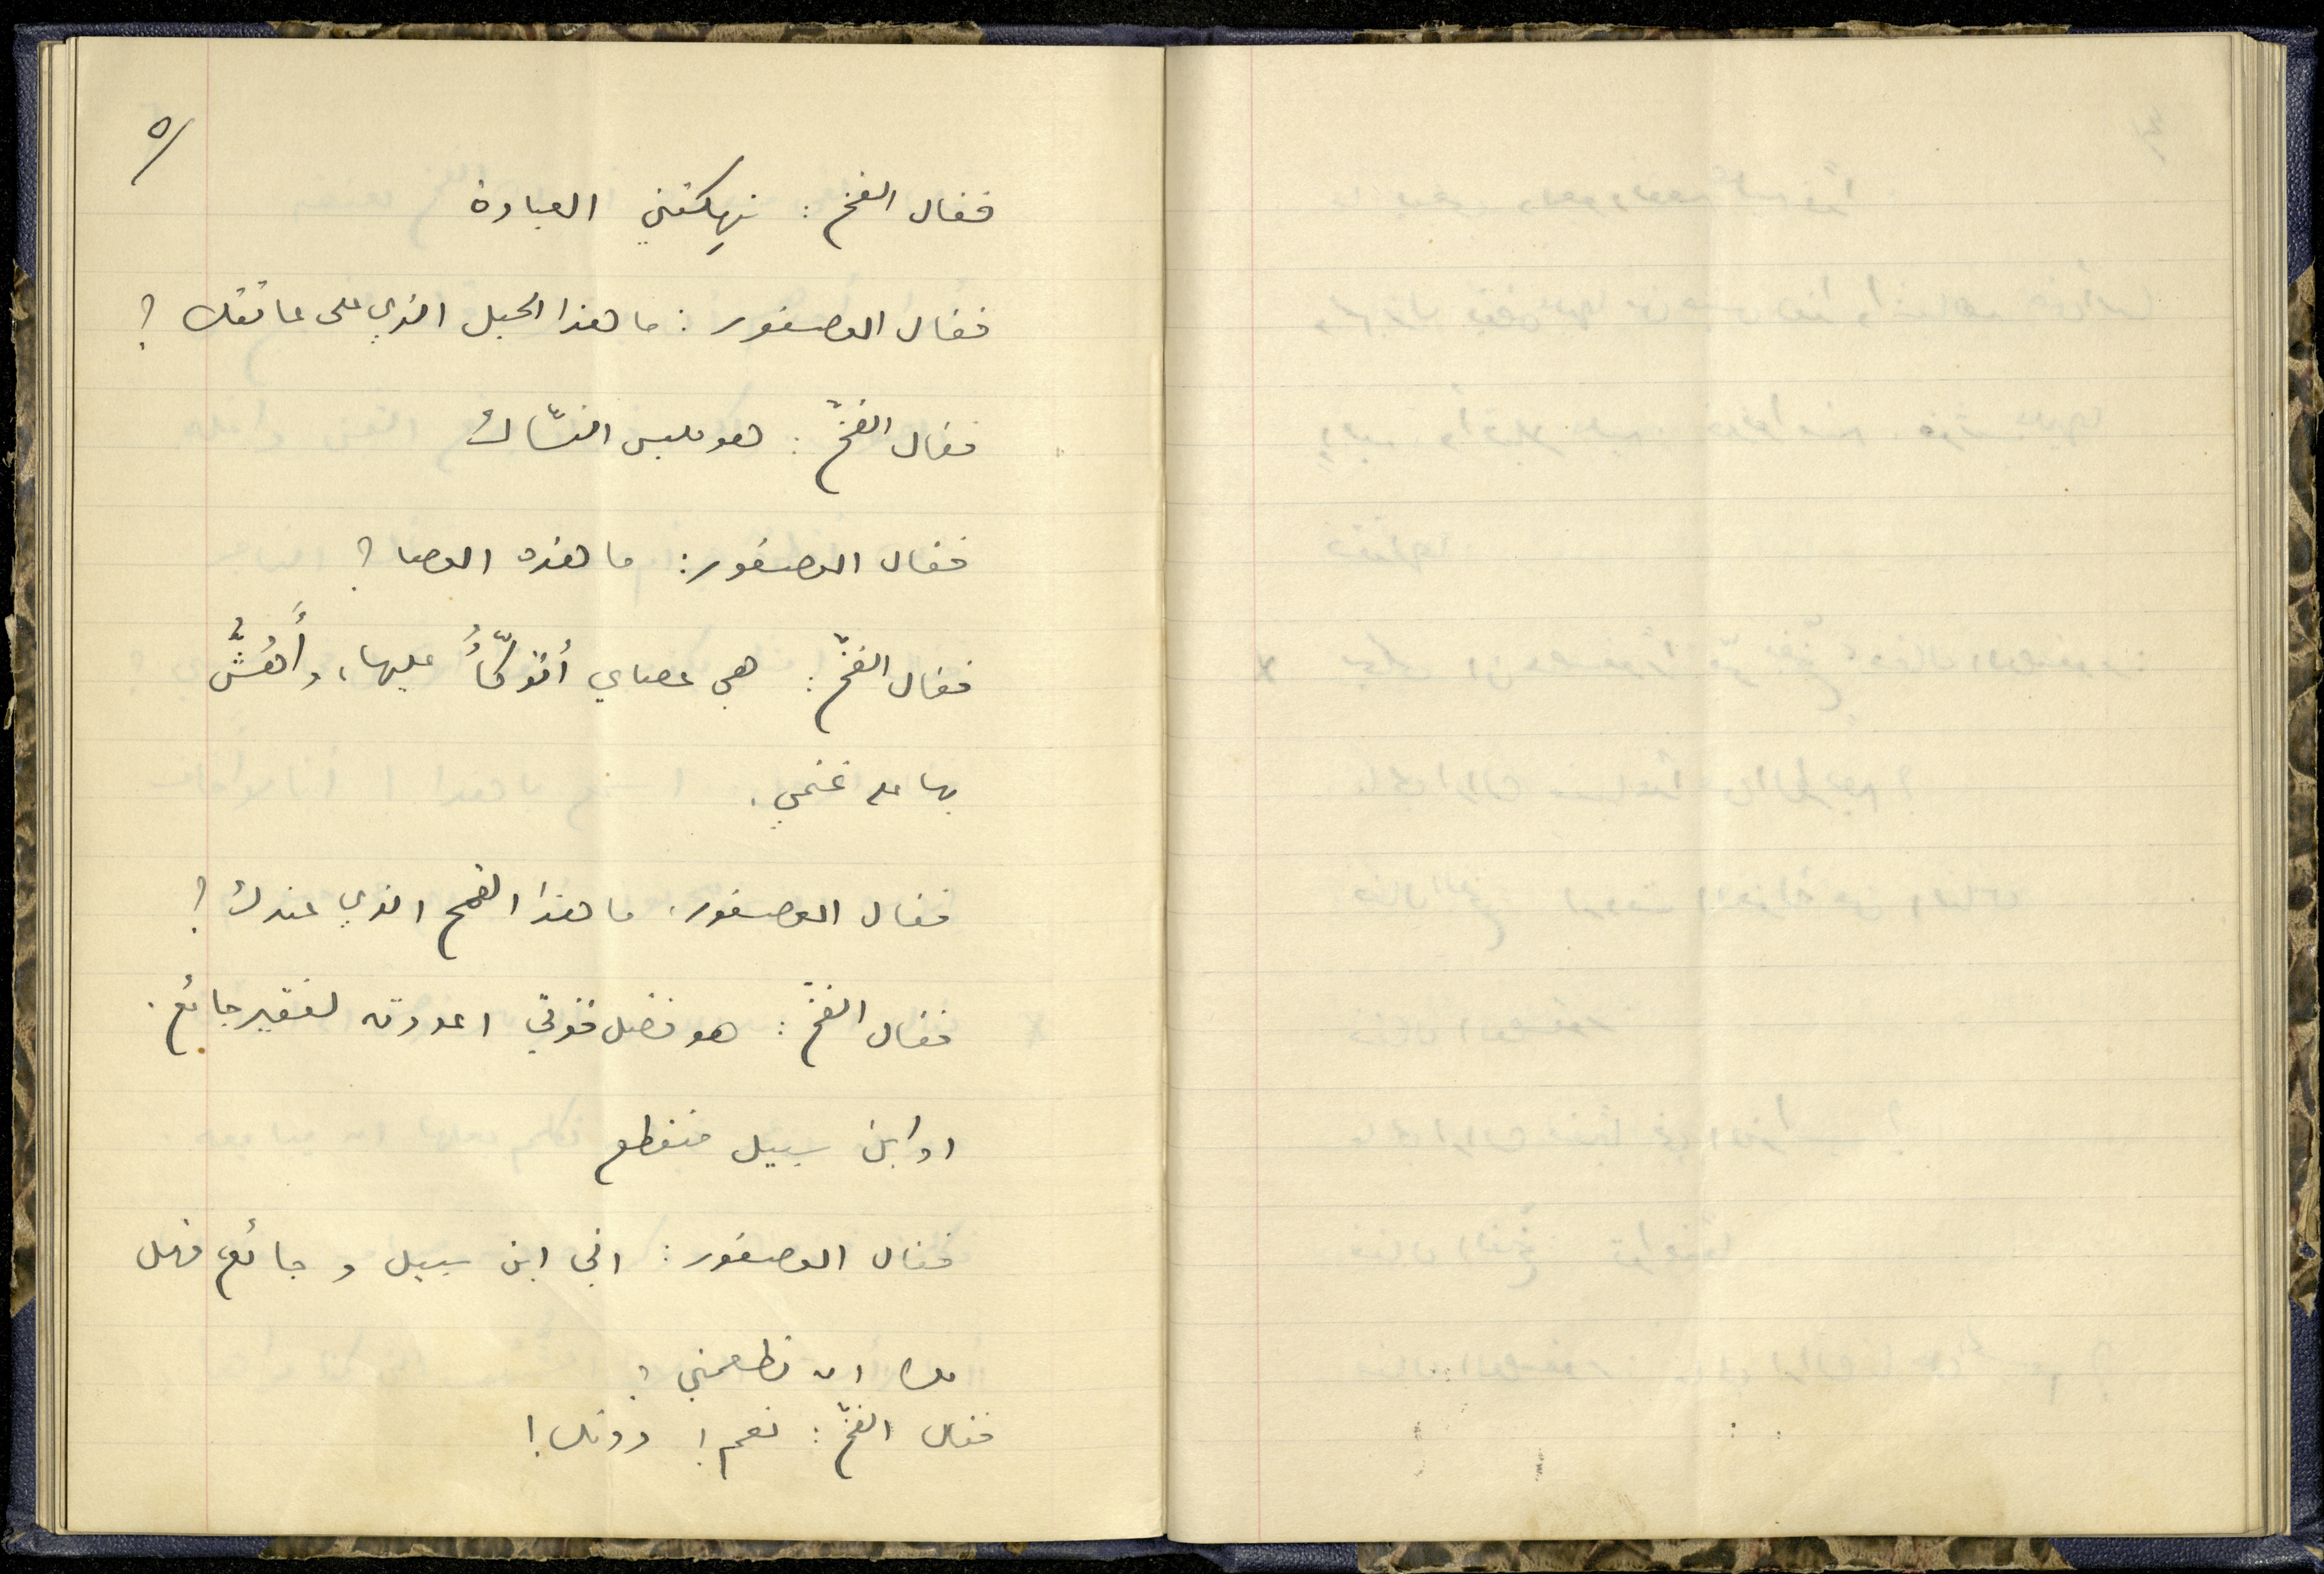 ٥/
فقال الفخ : نهكتني العبادة
فقال العصفور : ما هذا الحبل الذي على عاتقك ؟
فقال الفخّ : هو ملبس النسّاك
فقال العصفور : ما هذه العصا ؟
فقال الفخّ : هي عصاي أتوكّأُ عليها، وأَهُشُّ
بها على غنمي .
فقال العصفور : ما هذا القمح الذي عندك ؟
فقال الفخّ : هو فضل قوتي اعددته لفقير جائع .
او ابن سبيل منقطع
فقال العصفور : اني ابن سبيل و جائع فهل
لك ان تطعمني ؟
فقال الفخّ : نعم ! دونك !